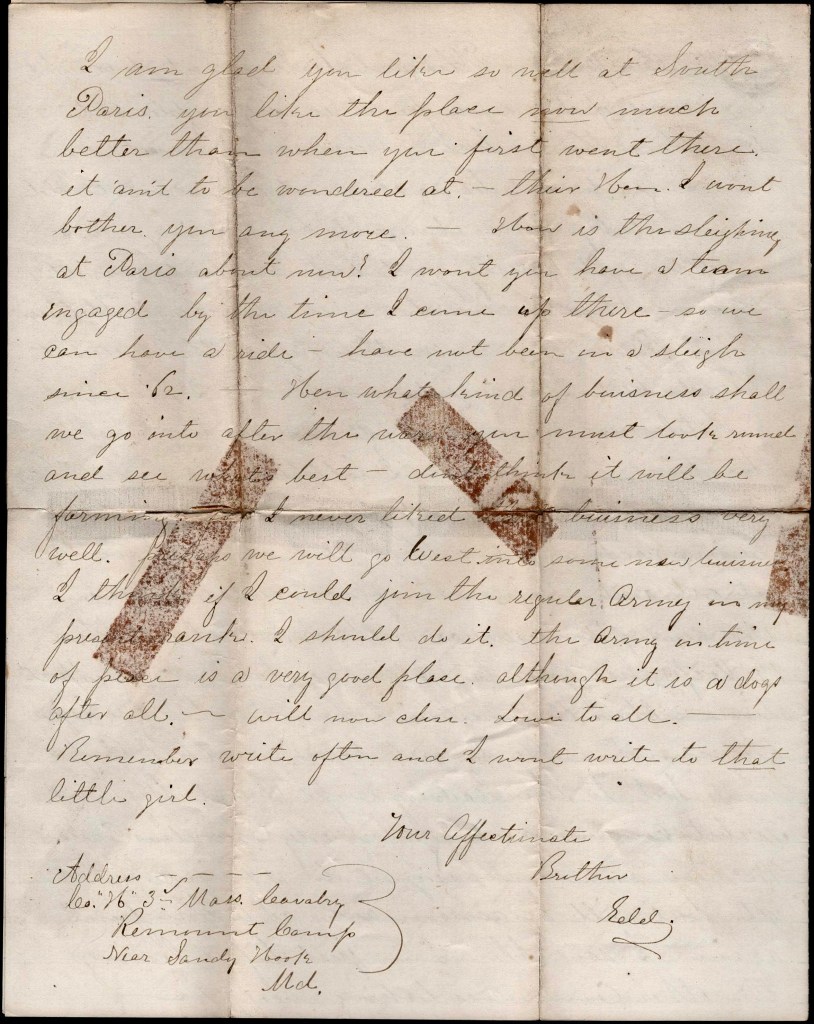 I am glad you like so well at South
Paris. you like the place now much
better than when you first went there.
it 'ain't to be wondered at. — their Hen. I wont
bother you any more. — How is the sleighing
at Paris about now? I want you have a team
engaged by the time I come up there — so we
can have a ride — have not been in a sleigh
since '62. — Hen what kind of buisness shall
we go into after the war you must look round
and see whats best — dont think it will be
farming I never liked buisness very
well. we will go West into some new buisness
I think if I could join the regular Army in my
present rank. I should do it. the Army in time
of peace is a very good place. although it is a dogs
after all. — will now close. Love to all. —
Remember write often and I wont write to that
little girl.
Your Affectionate
Brother
Edd.
Address — — — —
Co. "H" 3rd Mass. Cavalry
Remount Camp
Near Sandy Hook
Md.